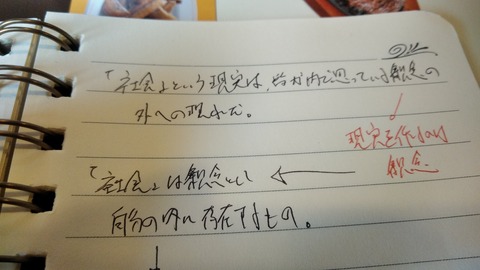 「社会」という現実は、が内で思っている観念の
外への現れだ。
現実を作るのは
観念
「社会」は観念として
自分の内に存在するもの。